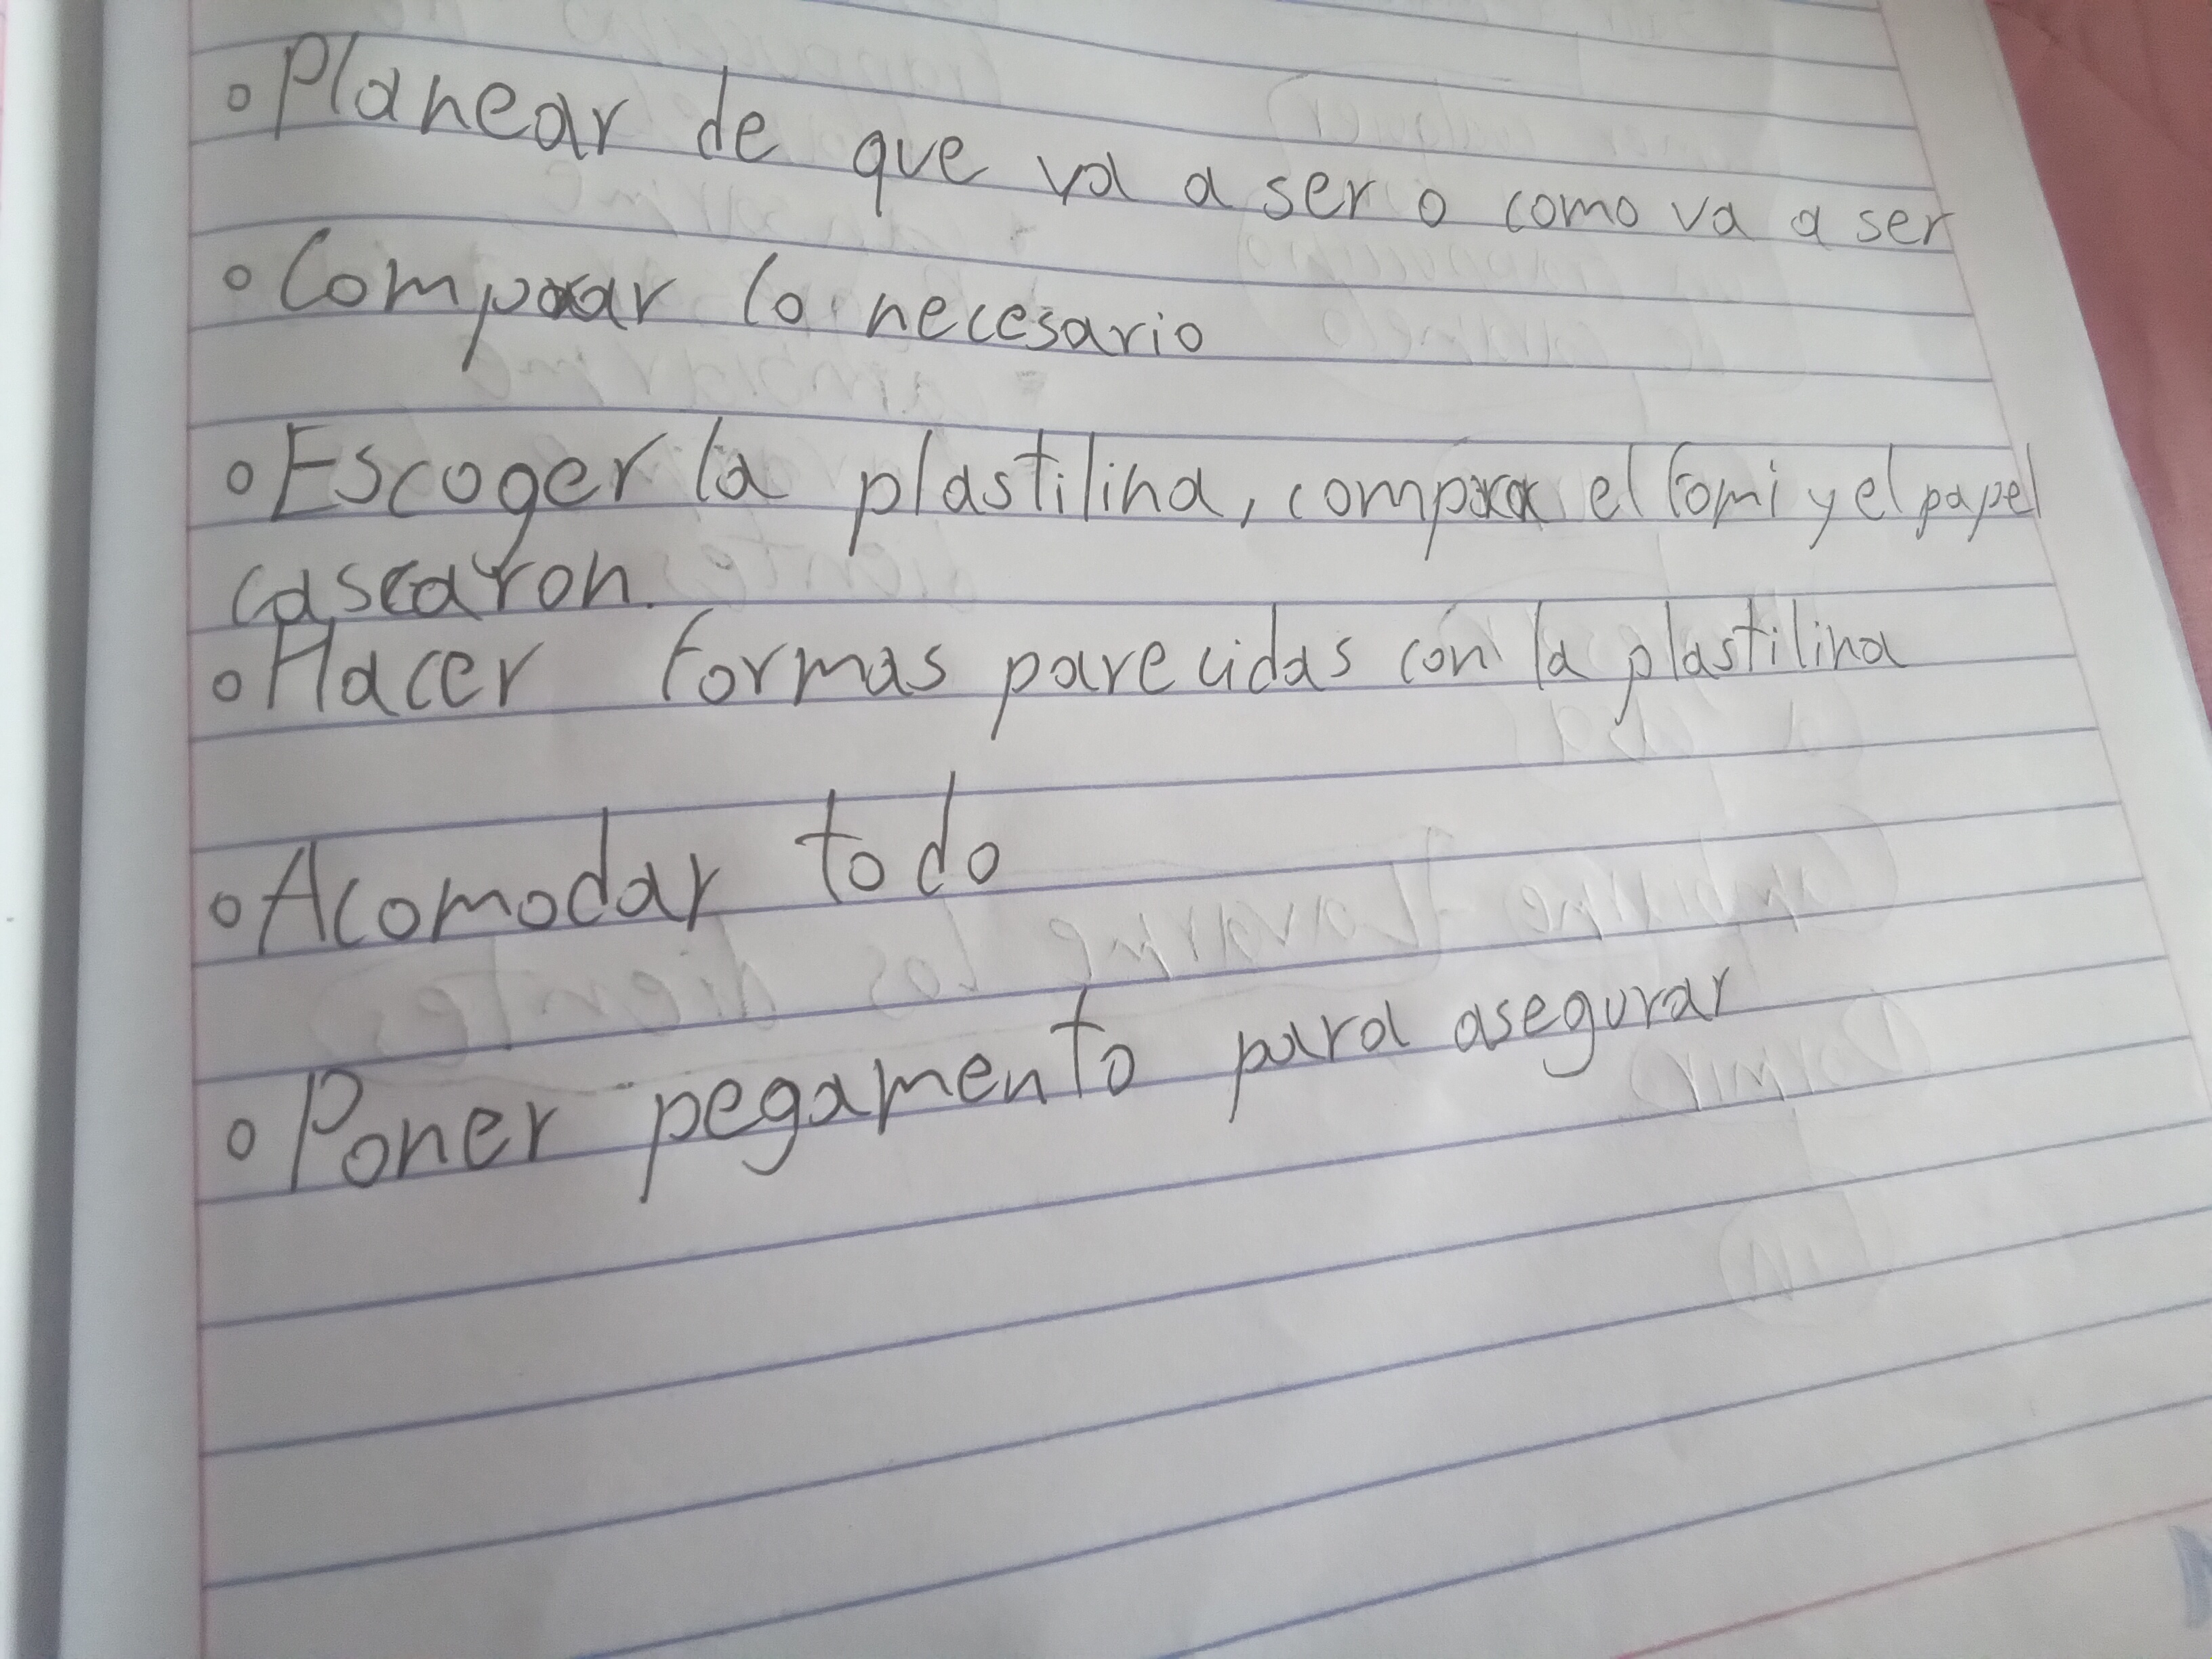 ◦ Planear de que va a ser o como va a ser
◦ Comprar lo necesario
◦ Escoger la plastilina, comprar el fomi y el papel
cascaron.
◦ Hacer formas parecidas con la plastilina
◦ Acomodar todo
◦ Poner pegamento para asegurar